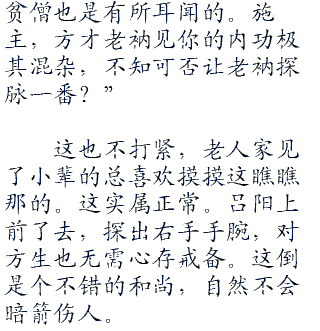 贫僧也是有所耳闻的。施
主，方才老衲见你的内功极
其混杂，不知可否让老衲探
脉一番？”
这也不打紧，老人家见
了小辈的总喜欢摸摸这瞧瞧
那的。这实属正常。吕阳上
前了去，探出右手手腕，对
方生也无需心存戒备。这倒
是个不错的和尚，自然不会
暗箭伤人。